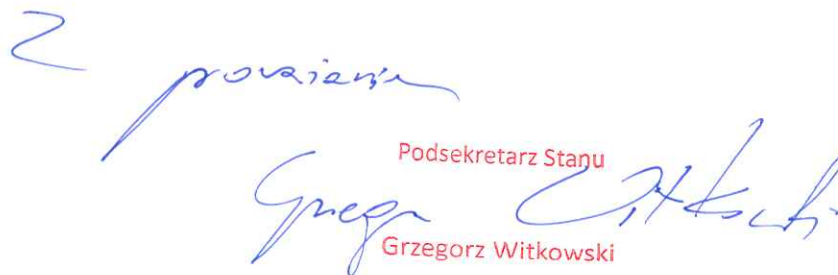 Z poważaniem
Podsekretarz Stanu
Grzegorz Witkowski
Grzegorz Witkowski